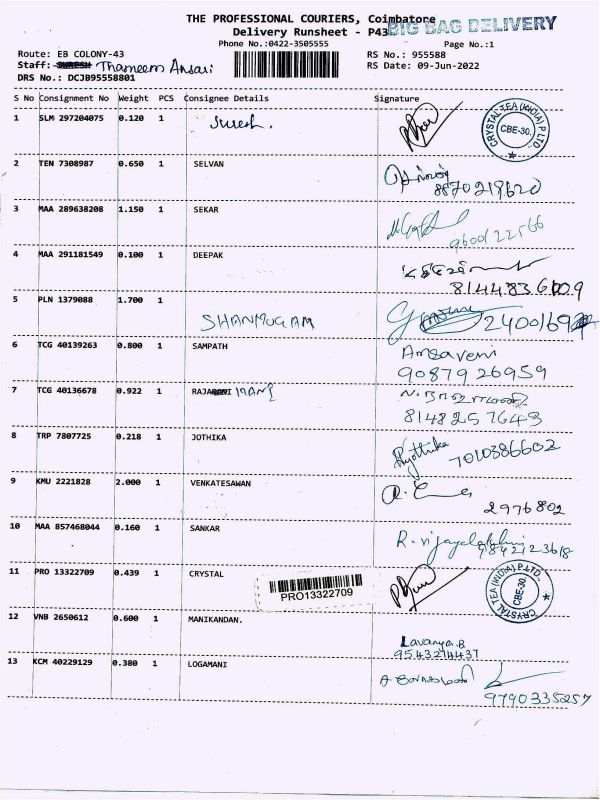 THE PROFESSIONAL COURIERS, Coimbatore
Delivery Runsheet - P43
BIG BAG DELIVERY
Phone No.:0422-3505555
Page No.:1
Route: EB COLONY-43
RS No.: 955588
Staff: SURESH Thameem Ansari
RS Date: 09-Jun-2022
DRS No.: DCJB95558801
S No Consignment No Weight PCS Consignee Details Signature
1 SLM 297204075 0.120 1 Suresh.
CRYSTAL TEA (INDIA) P.LTD
CBE-30.
2 TEN 7308987 0.650 1 SELVAN
8870219620
3 MAA 289638208 1.150 1 SEKAR
9600122566
4 MAA 291181549 0.100 1 DEEPAK
8144836009
5 PLN 1379088 1.700 1
SHANMUGAM
6 TCG 40139263 0.800 1 SAMPATH Ambaveni
9087926959
7 TCG 40136678 0.922 1 RAJAMANI
8148257643
8 TRP 7807725 0.218 1 JOTHIKA Jyothika 7010386602
9 KMU 2221828 2.000 1 VENKATESAWAN
2976802
10 MAA 857468044 0.160 1 SANKAR R. Vijayalakshmi
9842123618
11 PRO 13322709 0.439 1 CRYSTAL
PRO13322709
CRYSTAL TEA (INDIA) P.LTD.
CBE-30.
12 VNB 2650612 0.600 1 MANIKANDAN.
Lavanya.B
9543214437
13 KCM 40229129 0.380 1 LOGAMANI
9790335257